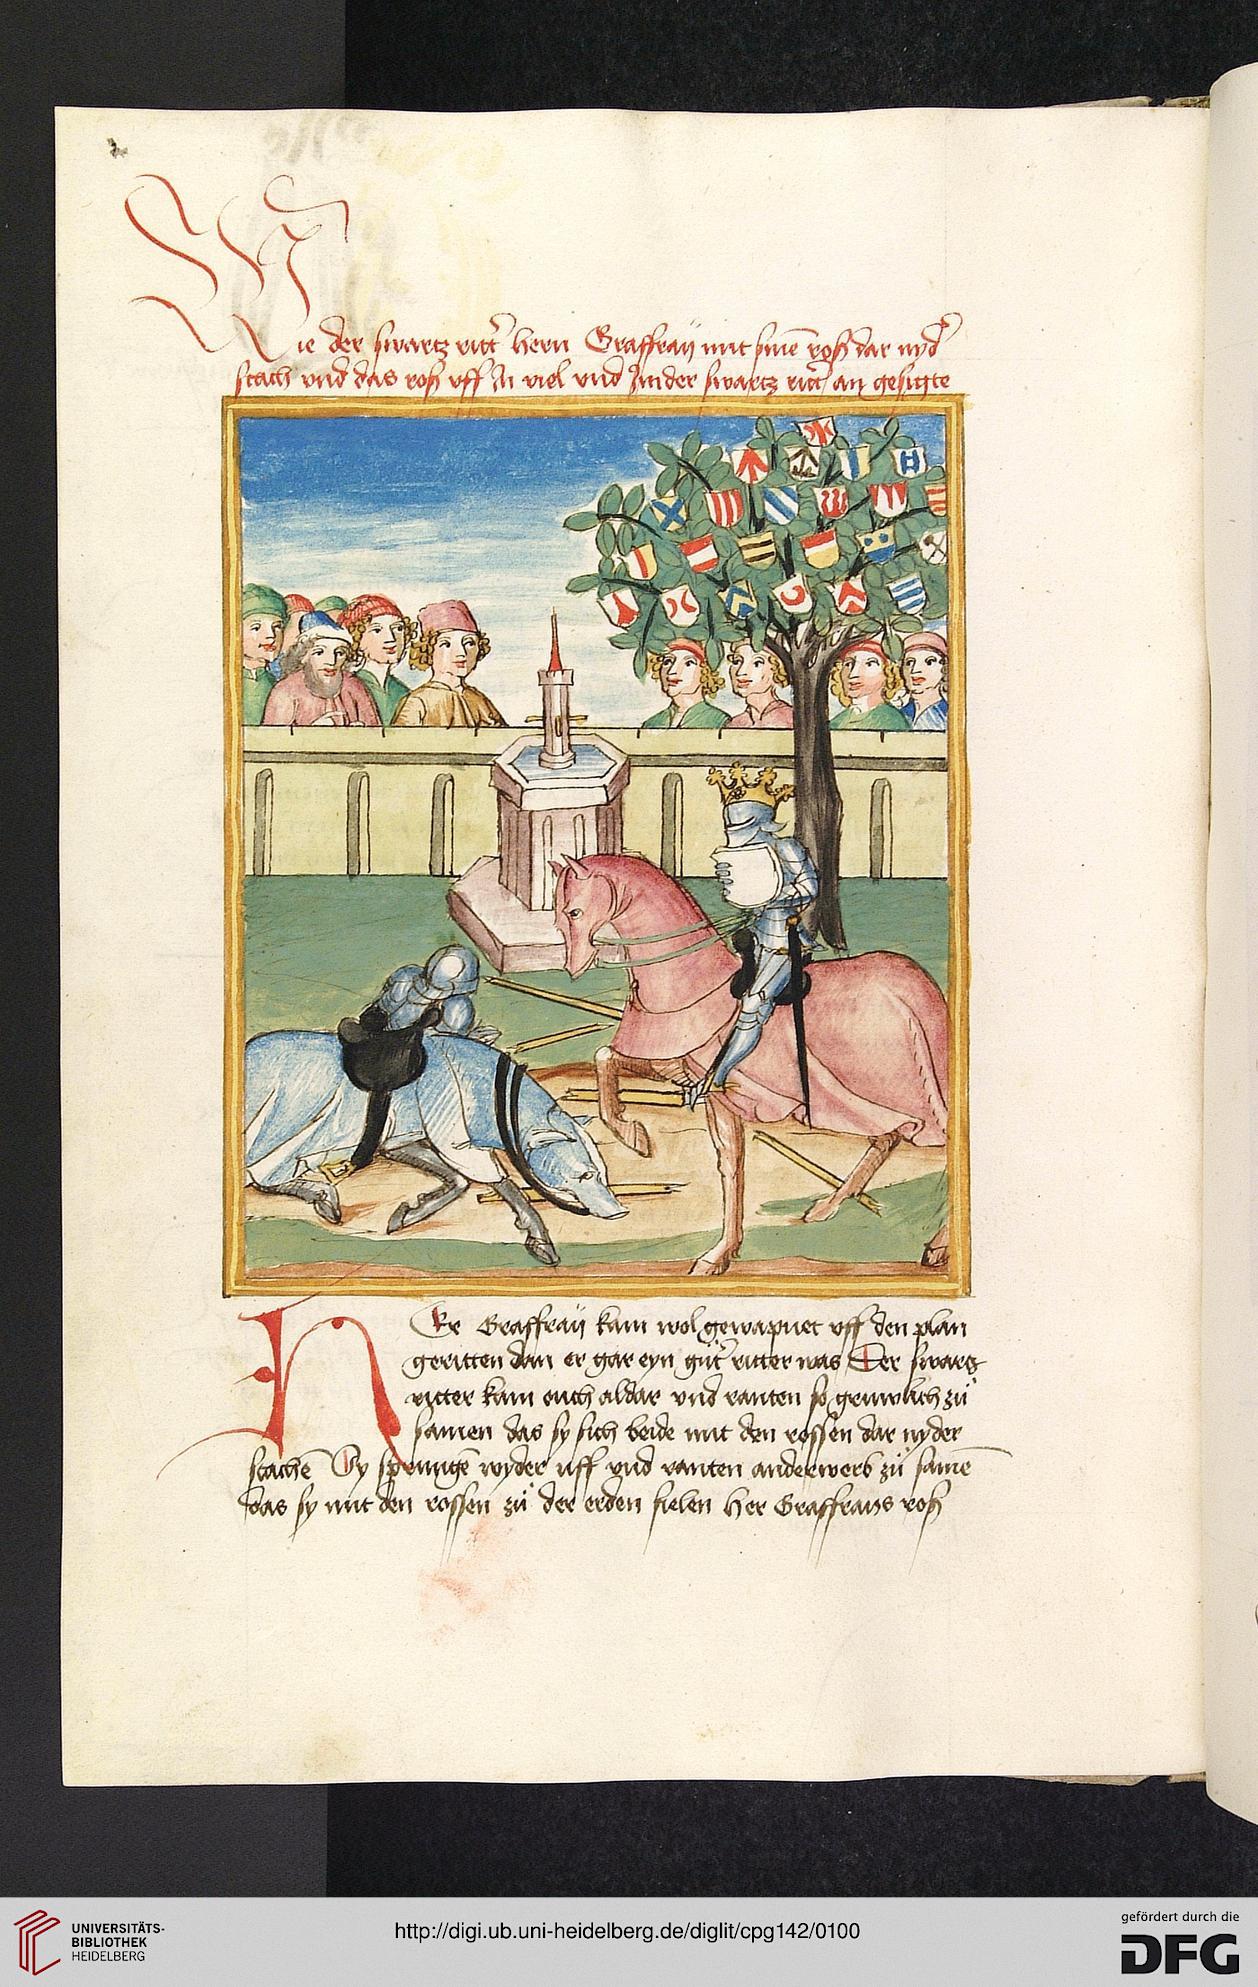 Wie der swartz ritt' hern Graffraÿ mit sinē roß dar nyd'
stach vnd das roß vff In viel vnd In der swartz ritt' an gesigte
HEr Graffraÿ kam wol gewapnet vff den plan
geritten dan er gar eyn gut' ritter was Der swartz
ritter kam ouch aldar vnd ranten so gruwlich zu
samen das sy sich beide mit den rossen dar nyder
stachē Sy sprungē wyder uff vnd ranten anderwerb zu samē
das sy mit den rossen zu der erden fielen her Graffrays roß
UNIVERSITÄTS-
BIBLIOTHEK
HEIDELBERG
http://digi.ub.uni-heidelberg.de/diglit/cpg142/0100
gefördert durch die
DFG